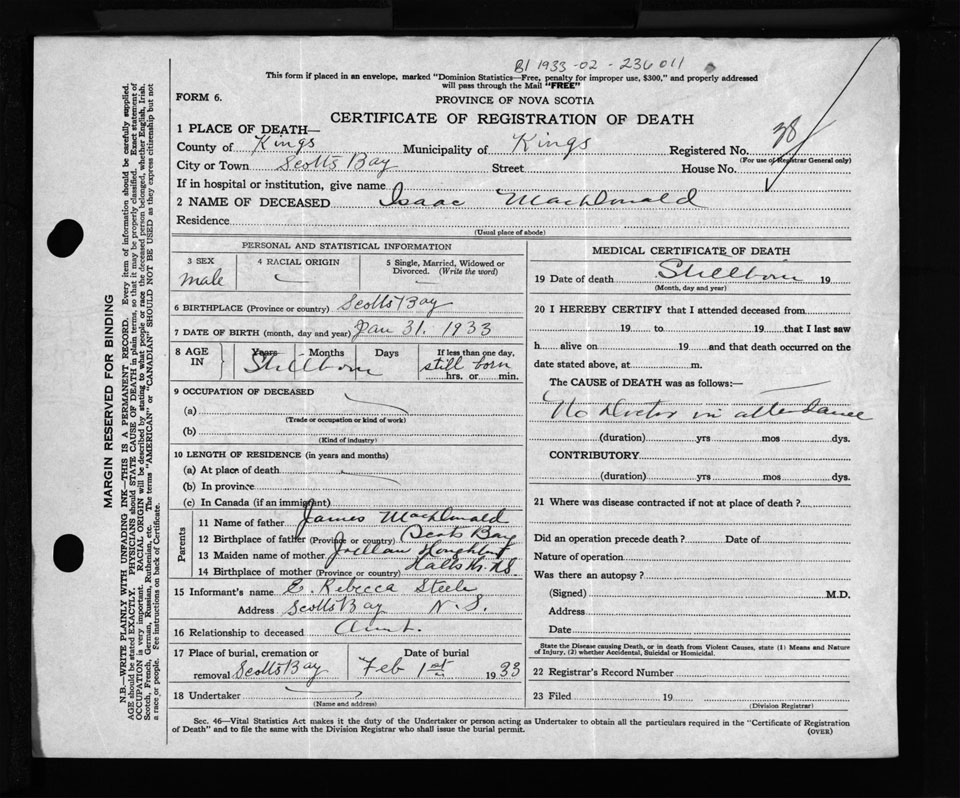 B1 1933-02-236011
This form if placed in an envelope, marked "Dominion Statistics—Free, penalty for improper use, $300," and properly addressed
will pass through the Mail "FREE"
FORM 6.
PROVINCE OF NOVA SCOTIA
CERTIFICATE OF REGISTRATION OF DEATH
1 PLACE OF DEATH—
County of Kings Municipality of Kings Registered No. 38
(For use of Registrar General only)
City or Town Scotts Bay Street House No.
If in hospital or institution, give name
2 NAME OF DECEASED Isaac MacDonald
Residence
(Usual place of abode)
PERSONAL AND STATISTICAL INFORMATION
3 SEX 4 RACIAL ORIGIN 5 Single, Married, Widowed or
Divorced. (Write the word)
male
6 BIRTHPLACE (Province or country) Scotts Bay
7 DATE OF BIRTH (month, day and year) Jan 31. 1933
8 AGE IN Years Months Days If less than one day,
Stillborn still born
hrs. or min.
9 OCCUPATION OF DECEASED
(a)
(Trade or occupation or kind of work)
(b)
(Kind of industry)
10 LENGTH OF RESIDENCE (in years and months)
(a) At place of death
(b) In province
(c) In Canada (if an immigrant)
Parents
11 Name of father James MacDonald
12 Birthplace of father (Province or country) Scots Bay
13 Maiden name of mother
14 Birthplace of mother (Province or country) Halls Hr. N.S.
15 Informant's name E. Rebecca Steele
Address Scotts Bay N.S.
16 Relationship to deceased Aunt.
17 Place of burial, cremation or Date of burial
removal Scotts Bay Feb 1st 1933
18 Undertaker
(Name and address)
MEDICAL CERTIFICATE OF DEATH
19 Date of death Stillborn 19
(Month, day and year)
20 I HEREBY CERTIFY that I attended deceased from
19 to 19 that I last saw
h alive on 19 and that death occurred on the
date stated above, at m.
The CAUSE of DEATH was as follows:—
No Doctor in attendance
(duration) yrs mos dys.
CONTRIBUTORY
(duration) yrs mos dys.
21 Where was disease contracted if not at place of death?
Did an operation precede death? Date of
Nature of operation
Was there an autopsy?
(Signed) M.D.
Address
Date
State the Disease causing Death, or in death from Violent Causes, state (1) Means and Nature
of Injury, (2) whether Accidental, Suicidal or Homicidal.
22 Registrar's Record Number
23 Filed 19
(Division Registrar)
Sec. 46—Vital Statistics Act makes it the duty of the Undertaker or person acting as Undertaker to obtain all the particulars required in the "Certificate of Registration
of Death" and to file the same with the Division Registrar who shall issue the burial permit.
(OVER)
MARGIN RESERVED FOR BINDING
N.B.—WRITE PLAINLY WITH UNFADING INK—THIS IS A PERMANENT RECORD. Every item of information should be carefully supplied.
AGE should be stated EXACTLY. PHYSICIANS should STATE CAUSE OF DEATH in plain terms, so that it may be properly classified. Exact statement of
OCCUPATION is very important. RACIAL ORIGIN will be described by stating to what people or race the deceased person belonged, whether English, Irish,
Scotch, French, German, Russian, Ruthenian, etc. The terms "AMERICAN" or "CANADIAN" SHOULD NOT BE USED as they express citizenship but not
a race or people. Fee instructions on back of Certificate.